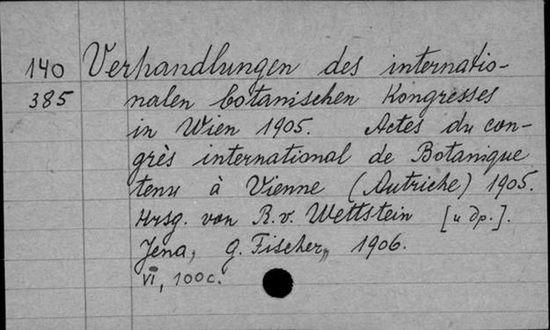 140 Verhandlungen des internatio-
385 nalen botanischen Kongresses
in Wien 1905. Actes du con-
grès international de Botanique
tenu à Vienne (Autriche) 1905.
Hrsg. von R. v. Wettstein [u др.].
Jena, G. Fischer, 1906.
VI, 100 c.